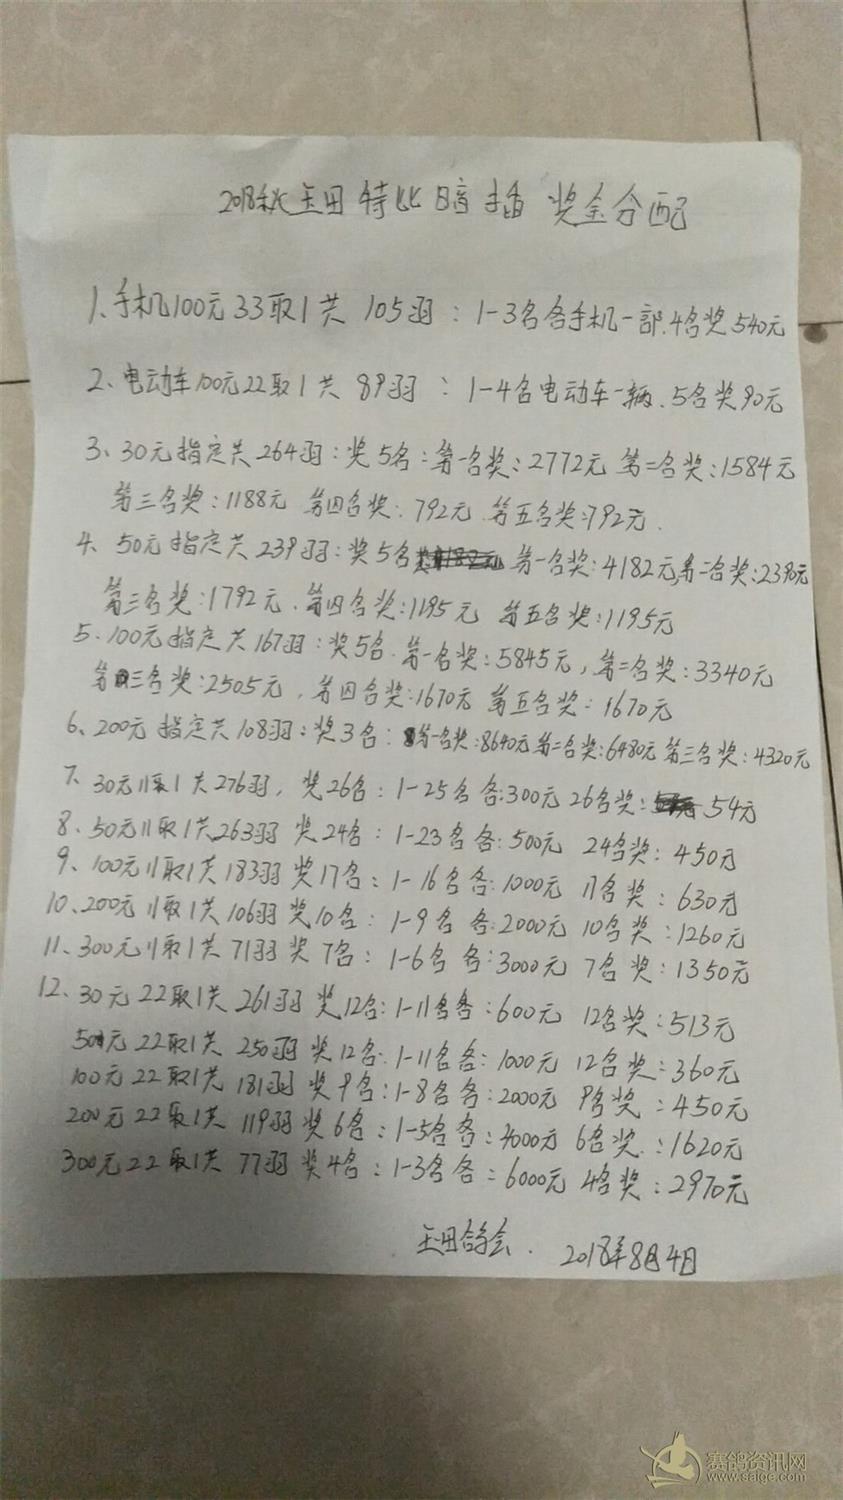 2018秋玉田特比暗插 奖金分配
1、手机100元33取1共 105羽：1-3名各手机一部.4名奖540元
2、电动车100元22取1共 89羽：1-4名电动车一辆、5名奖90元
3、30元指定共264羽：奖5名：第一名奖：2772元 第二名奖：1584元
第三名奖：1188元 第四名奖：792元 第五名奖：792元.
4、50元指定共239羽：奖5名 第一名奖：4182元,第二名奖：2390元
第三名奖：1792元.第四名奖：1195元 第五名奖：1195元
5、100元指定共167羽：奖5名.第一名奖：5845元，第二名奖：3340元
第三名奖：2505元，第四名奖：1670元 第五名奖：1670元
6、200元指定共108羽：奖3名：第一名奖：8640元第二名奖：6480元 第三名奖：4320元
7、30元11取1共276羽，奖26名：1-25名各：300元 26名奖：54元
8、50元11取1共263羽 奖24名：1-23名各：500元 24名奖：450元
9、100元11取1共183羽 奖17名：1-16名各：1000元 17名奖：630元
10、200元11取1共106羽奖10名：1-9名各：2000元 10名奖：1260元
11、300元11取1共71羽 奖7名：1-6名各：3000元 7名奖：1350元
12、30元22取1共261羽 奖12名：1-11名各：600元 12名奖：513元
50元22取1共 250羽奖12名：1-11名各：1000元 12名奖：360元
100元22取1共 181羽 奖9名：1-8名各：2000元 9名奖：450元
200元22取1共 119羽奖6名：1-5名各：4000元 6名奖：1620元
300元22取1共 77羽奖4名：1-3名各：6000元 4名奖：2970元
玉田鸽会. 2018年8月4日
赛鸽资讯网
www.saige.com